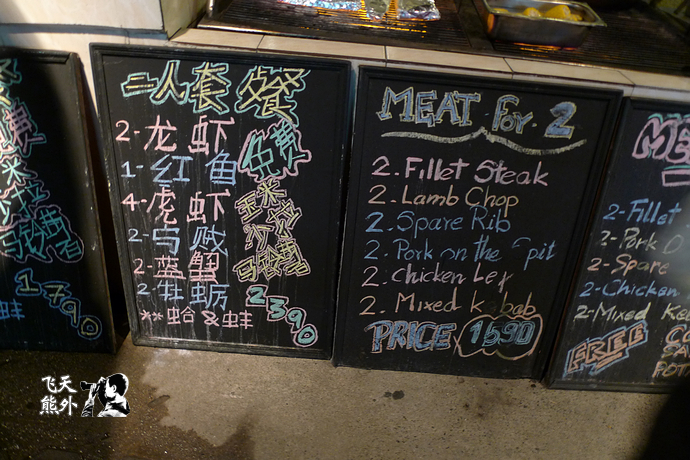 1790
蚌
二人套餐
2-龙虾
1-红鱼
4-虎虾
2-乌贼
2-蓝蟹
2-牡蛎
**蛤&蚌
免费
玉米
沙拉
马铃薯
2390
MEAT for 2
2. Fillet Steak
2. Lamb Chop
2. Spare Rib
2. Pork on the Spit
2. Chicken Ley
2. Mixed Kebab
PRICE 1590
2-Fillet
2-Pork
2-Spare
2-Chicken
2-Mixed
FREE
飞天
熊外